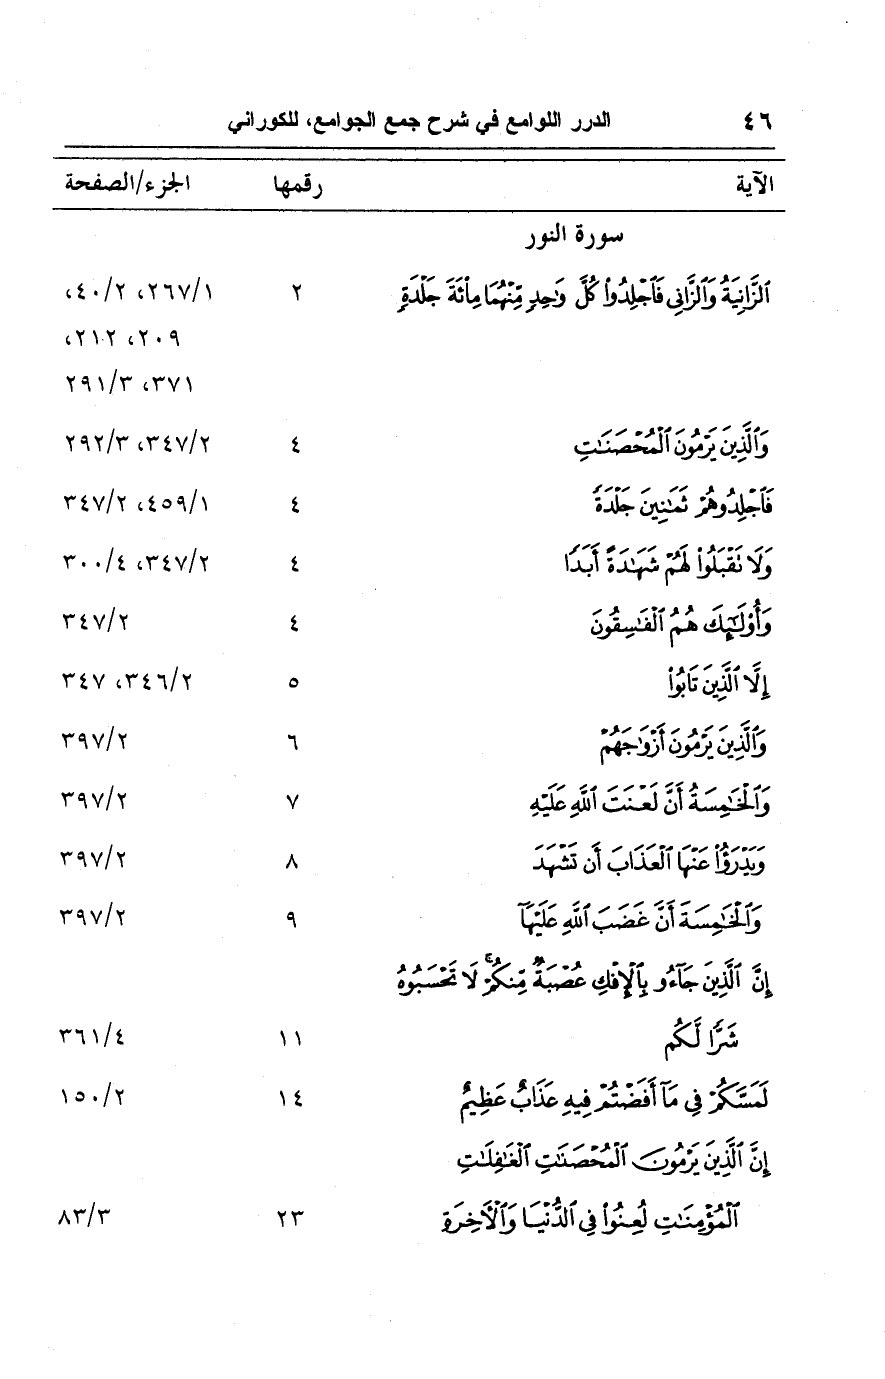 ٤٦ الدرر اللوامع في شرح جمع الجوامع، للكوراني
الآية رقمها الجزء/الصفحة
سورة النور
ٱلزَّانِيَةُ وَٱلزَّانِى فَٱجْلِدُوا۟ كُلَّ وَٰحِدٍ مِّنْهُمَا مِا۟ئَةَ جَلْدَةٍ ٢ ٢٦٧/١، ٤٠/٢،
٢٠٩، ٢١٢،
٣٧١، ٢٩١/٣
وَٱلَّذِينَ يَرْمُونَ ٱلْمُحْصَنَٰتِ ٤ ٣٤٧/٢، ٢٩٢/٣
فَٱجْلِدُوهُمْ ثَمَٰنِينَ جَلْدَةً ٤ ٤٥٩/١، ٣٤٧/٢
وَلَا تَقْبَلُوا۟ لَهُمْ شَهَٰدَةً أَبَدًا ٤ ٣٤٧/٢، ٣٠٠/٤
وَأُو۟لَٰٓئِكَ هُمُ ٱلْفَٰسِقُونَ ٤ ٣٤٧/٢
إِلَّا ٱلَّذِينَ تَابُوا۟ ٥ ٣٤٦/٢، ٣٤٧
وَٱلَّذِينَ يَرْمُونَ أَزْوَٰجَهُمْ ٦ ٣٩٧/٢
وَٱلْخَٰمِسَةُ أَنَّ لَعْنَتَ ٱللَّهِ عَلَيْهِ ٧ ٣٩٧/٢
وَيَدْرَؤُا۟ عَنْهَا ٱلْعَذَابَ أَن تَشْهَدَ ٨ ٣٩٧/٢
وَٱلْخَٰمِسَةَ أَنَّ غَضَبَ ٱللَّهِ عَلَيْهَآ ٩ ٣٩٧/٢
إِنَّ ٱلَّذِينَ جَآءُو بِٱلْإِفْكِ عُصْبَةٌ مِّنكُمْ ۚ لَا تَحْسَبُوهُ
شَرًّا لَّكُم ١١ ٣٦١/٤
لَمَسَّكُمْ فِى مَآ أَفَضْتُمْ فِيهِ عَذَابٌ عَظِيمٌ ١٤ ١٥٠/٢
إِنَّ ٱلَّذِينَ يَرْمُونَ ٱلْمُحْصَنَٰتِ ٱلْغَٰفِلَٰتِ
ٱلْمُؤْمِنَٰتِ لُعِنُوا۟ فِى ٱلدُّنْيَا وَٱلْءَاخِرَةِ ٢٣ ٨٣/٣